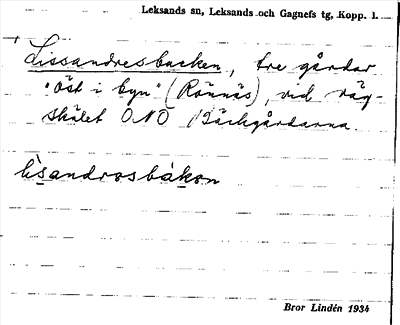 Leksands sn, Leksands och Gagnefs tg, Kopp. l.
Lissandresbacken, tre gårdar
"öst i byn" (Rönnäs), vid väg-
skälet ONO Bäckgårdarna.
lìsandrosbàkon
Bror Lindén 1934